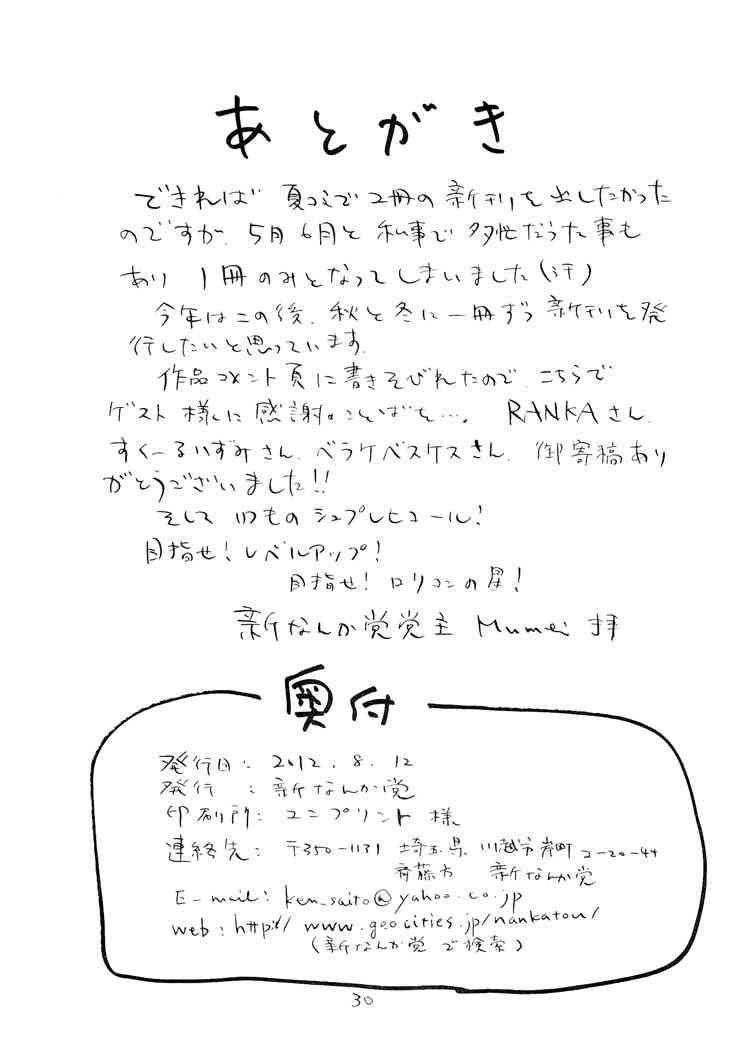 あとがき
できれば 夏コミで2冊の新刊を出したかった
のですが、5月6月と 私事で 多忙だった事も
あり 1冊のみとなってしまいました(汗)
今年はこの後、秋と冬に一冊ずつ 新刊を発
行したいと思っています。
作品コメント頁に書きそびれたので、こちらで
ゲスト様に感謝のことばを…。 RANKAさん、
すくーるいずみさん、ベラケベスケスさん、御寄稿あり
がとうございました!!
そして いつもの シュプレヒコール!
目指せ! レベルアップ!
目指せ! ロリコンの星!
新なんか党党主 Mumei 拝
奥付
発行日: 2012. 8. 12
発行 : 新なんか党
印刷所: ユニプリント 様
連絡先: 〒350-1131 埼玉県 川越市岸町 2-20-44
斉藤方 新なんか党
E-mail: ken_saito@yahoo.co.jp
web: http:// www.geocities.jp/nankatou/
(新なんか党 で検索)
30